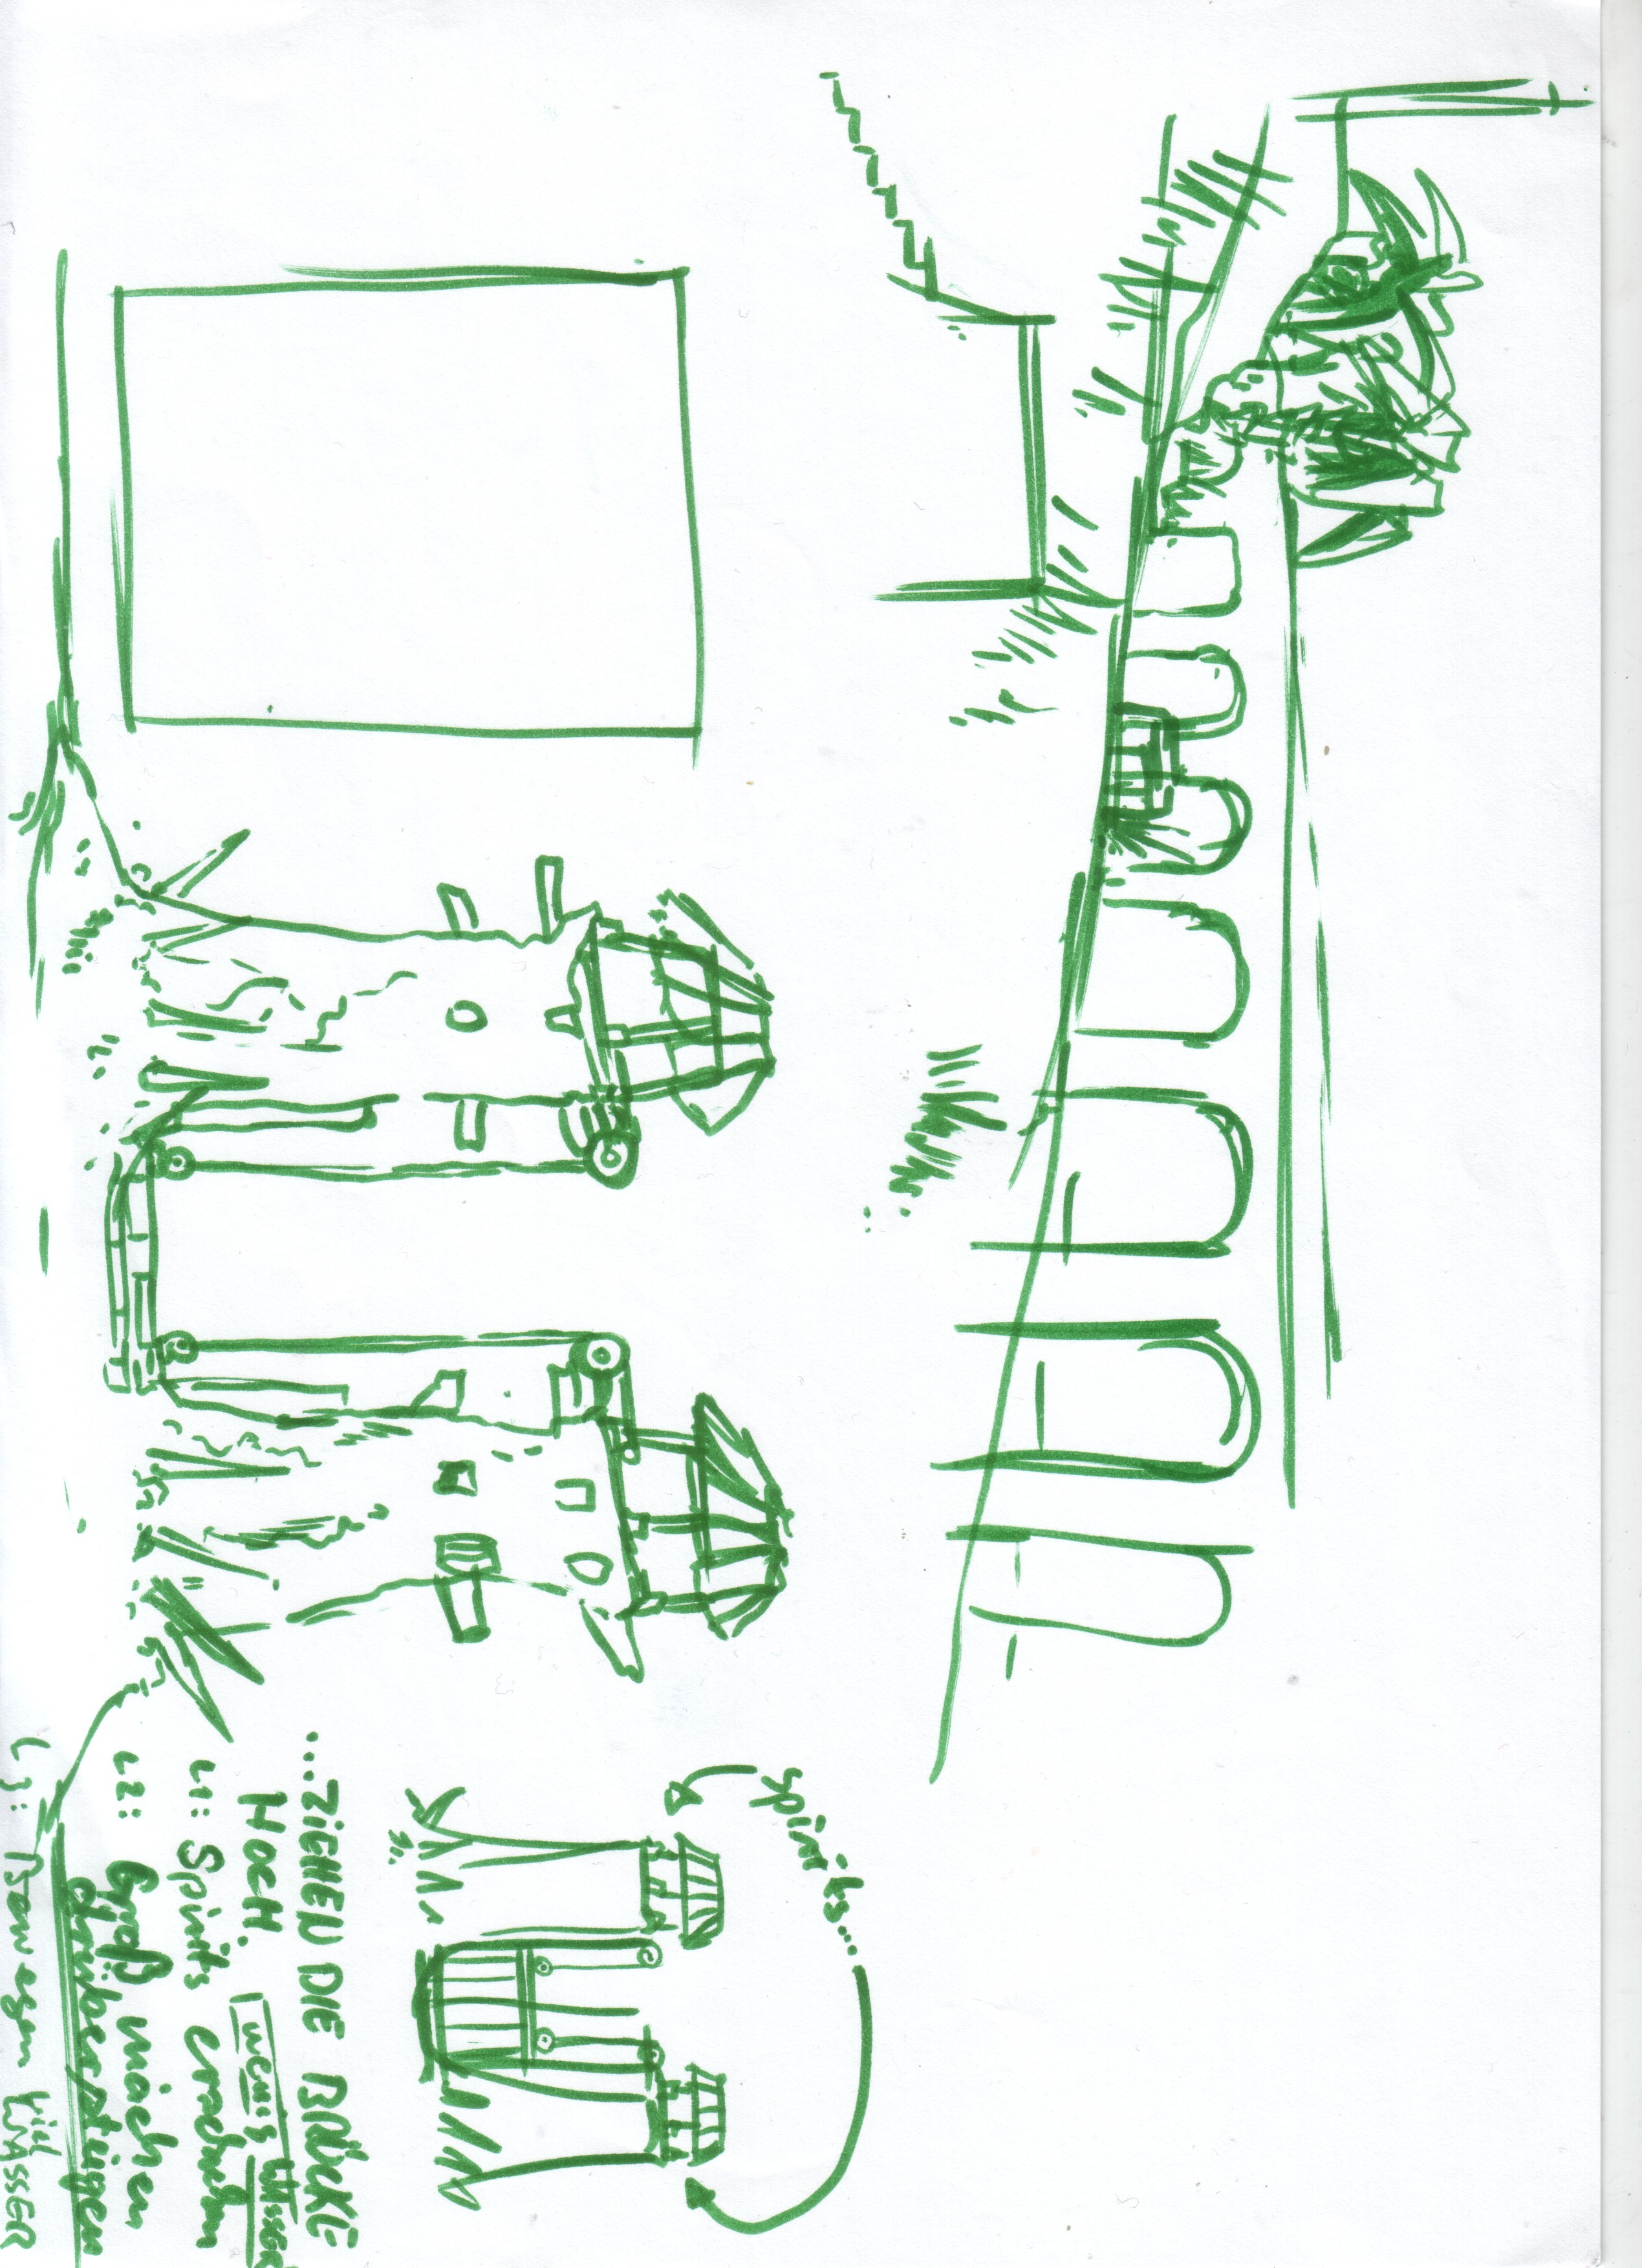 spirits...
...ZIEHEN DIE BRÜCKE
HOCH.
wenig WASSER
L1: Spirits erscheinen
L2: Groß machen
drüberstügen
L3: viel WASSER